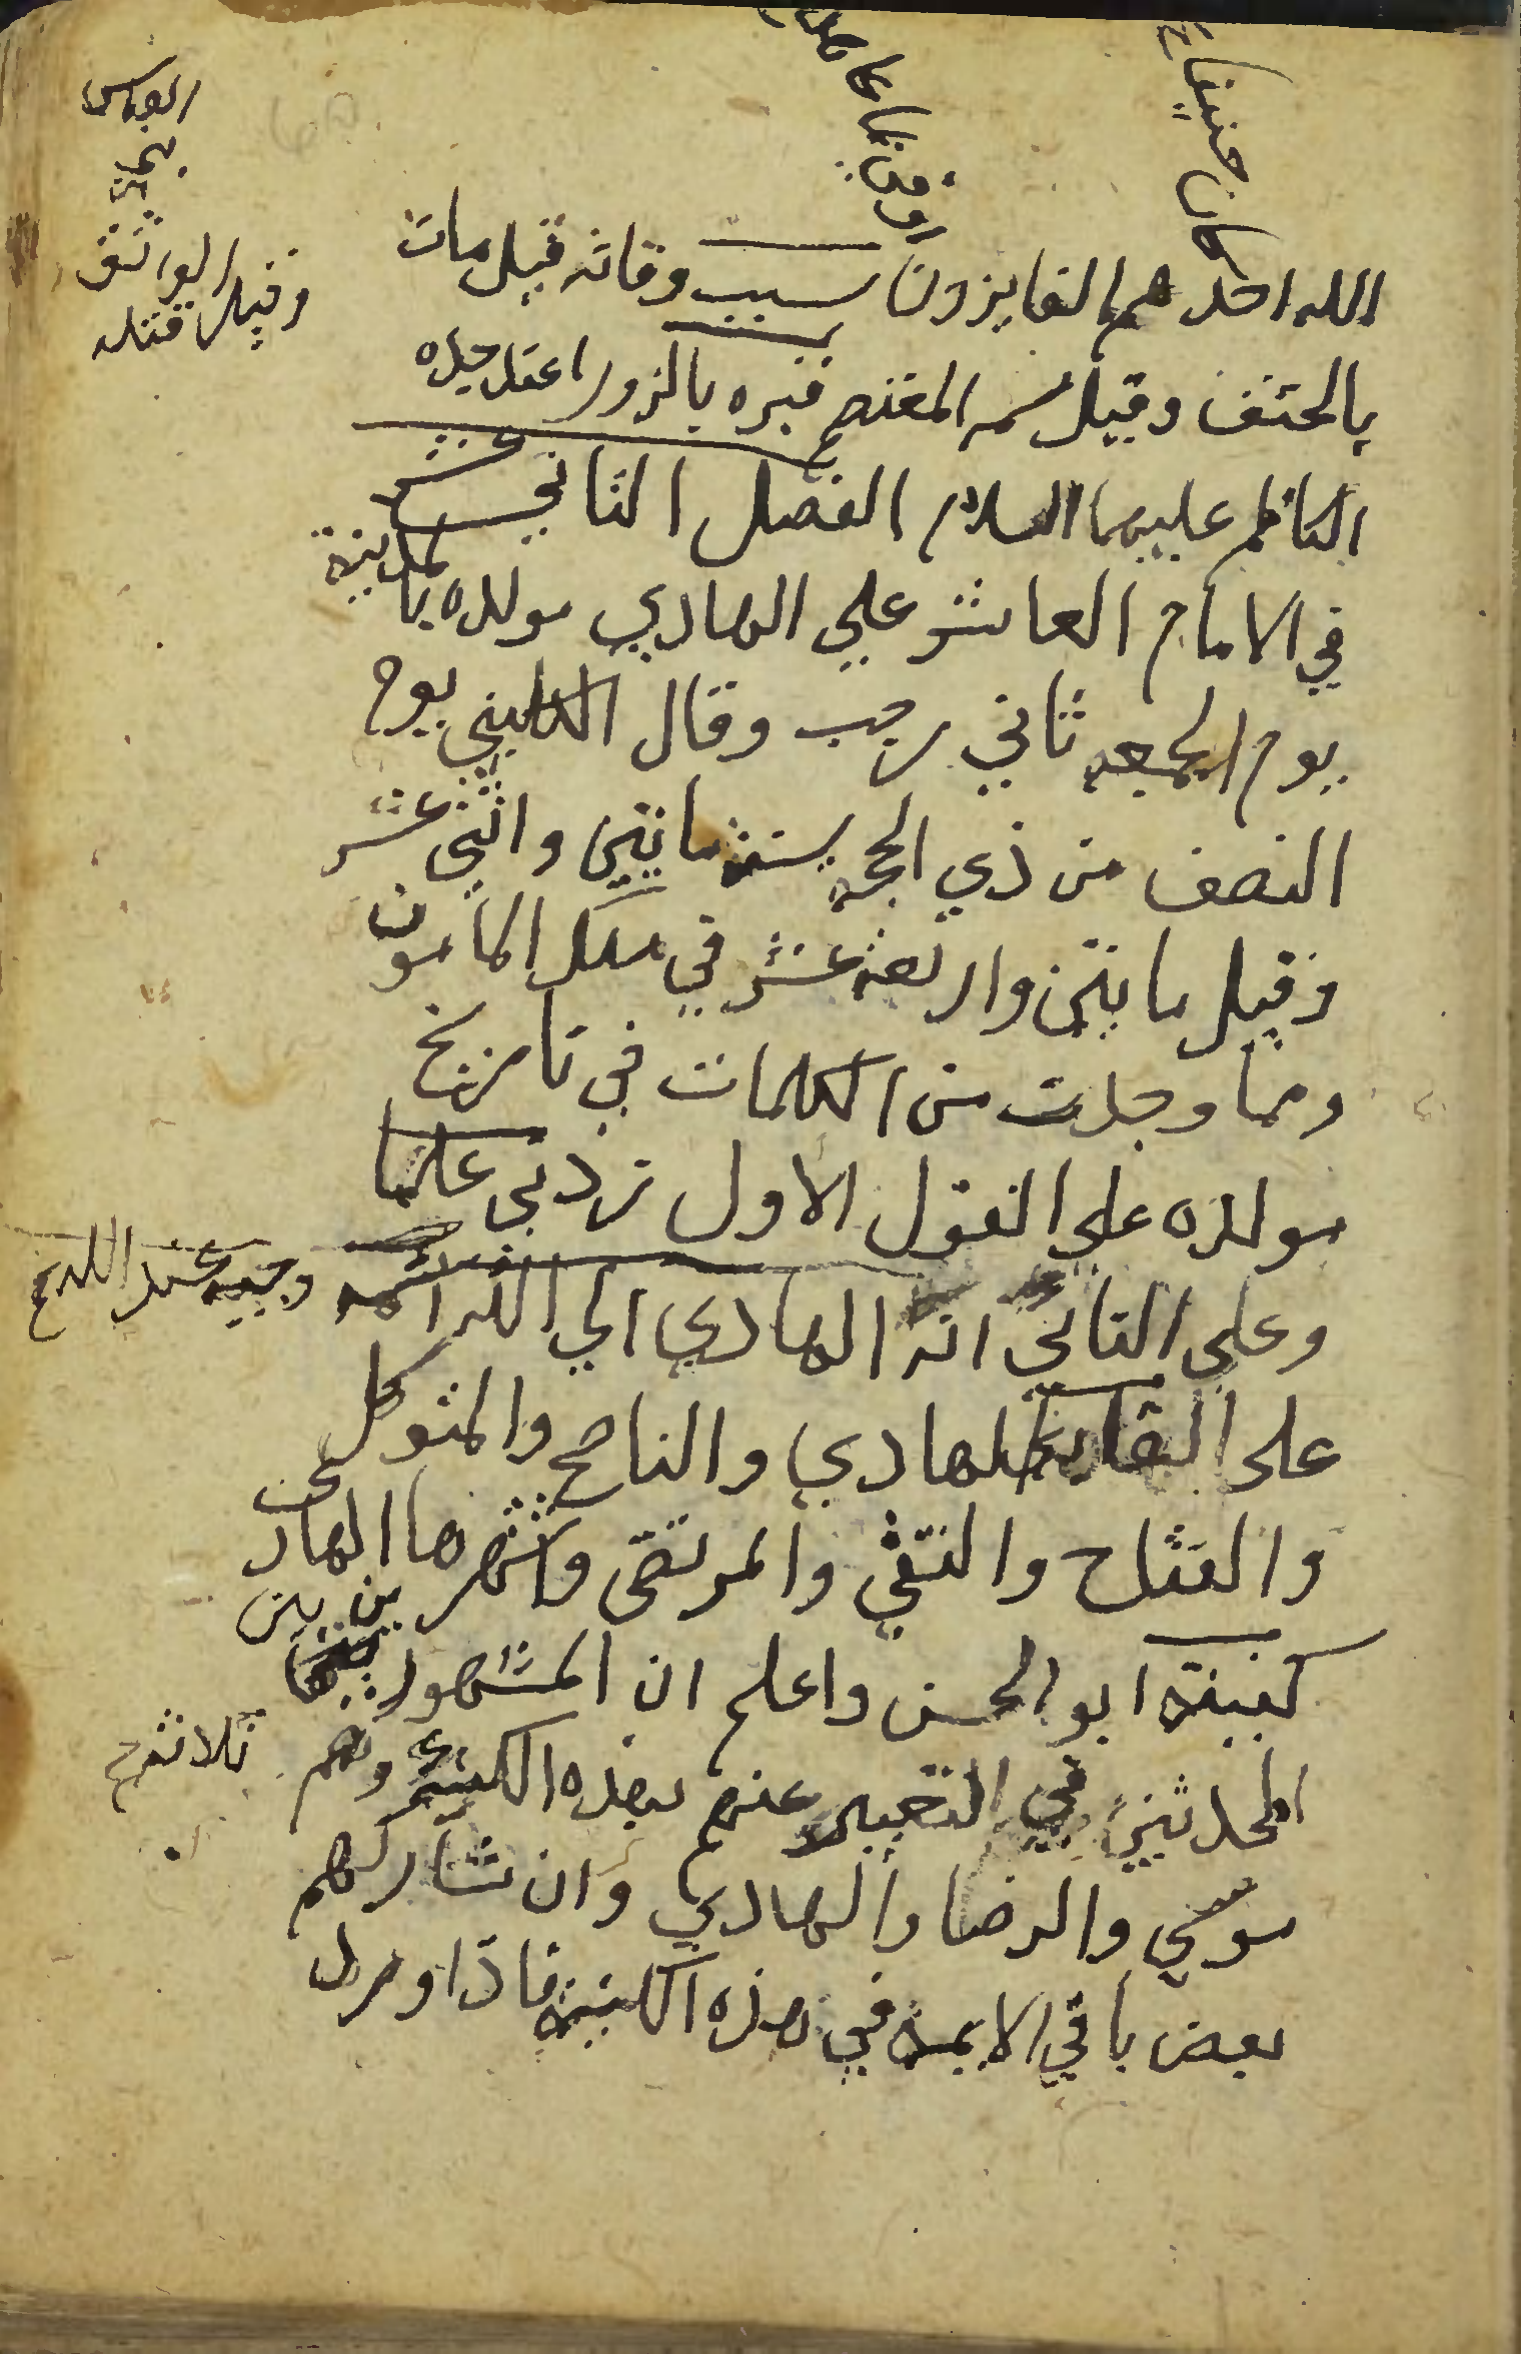 كان حنيفا
الواثق
وقيل الواثق
وقيل قتله
الله احد هم الفايزون سبب وفاته قيل مات
بالحتف وقيل سمه المعتصم قبره بالزوراء عند جده
الكاظم عليهما السلام الفصل الثاني عشر
في الامام العاشر علي الهادي مولده بالمدينة
يوم الجمعه ثاني رجب وقال الكليني يوم
النصف من ذي الحجه سنة ماتين واثني عشر
وقيل مايتين واربعة عشر في ملك المامون
ومما وجدت من الكلمات في تاريخ
مولده على القول الاول زدني علما
وعلى الثاني انه الهادي الى الله ائمه وجيه عند الله
على القابه الهادي والناصح والمتوكل
والفتاح والنقي والمرتضى واشهرها الهادي
كنيته ابو الحسن واعلم ان المشهور بين
المحدثين في التعبير عنهم بهذه الكنية وهم ثلاثة
موسى والرضا والهادي وان شاركهم
بعض باقي الايمة في هذه الكنية فاذا ورد